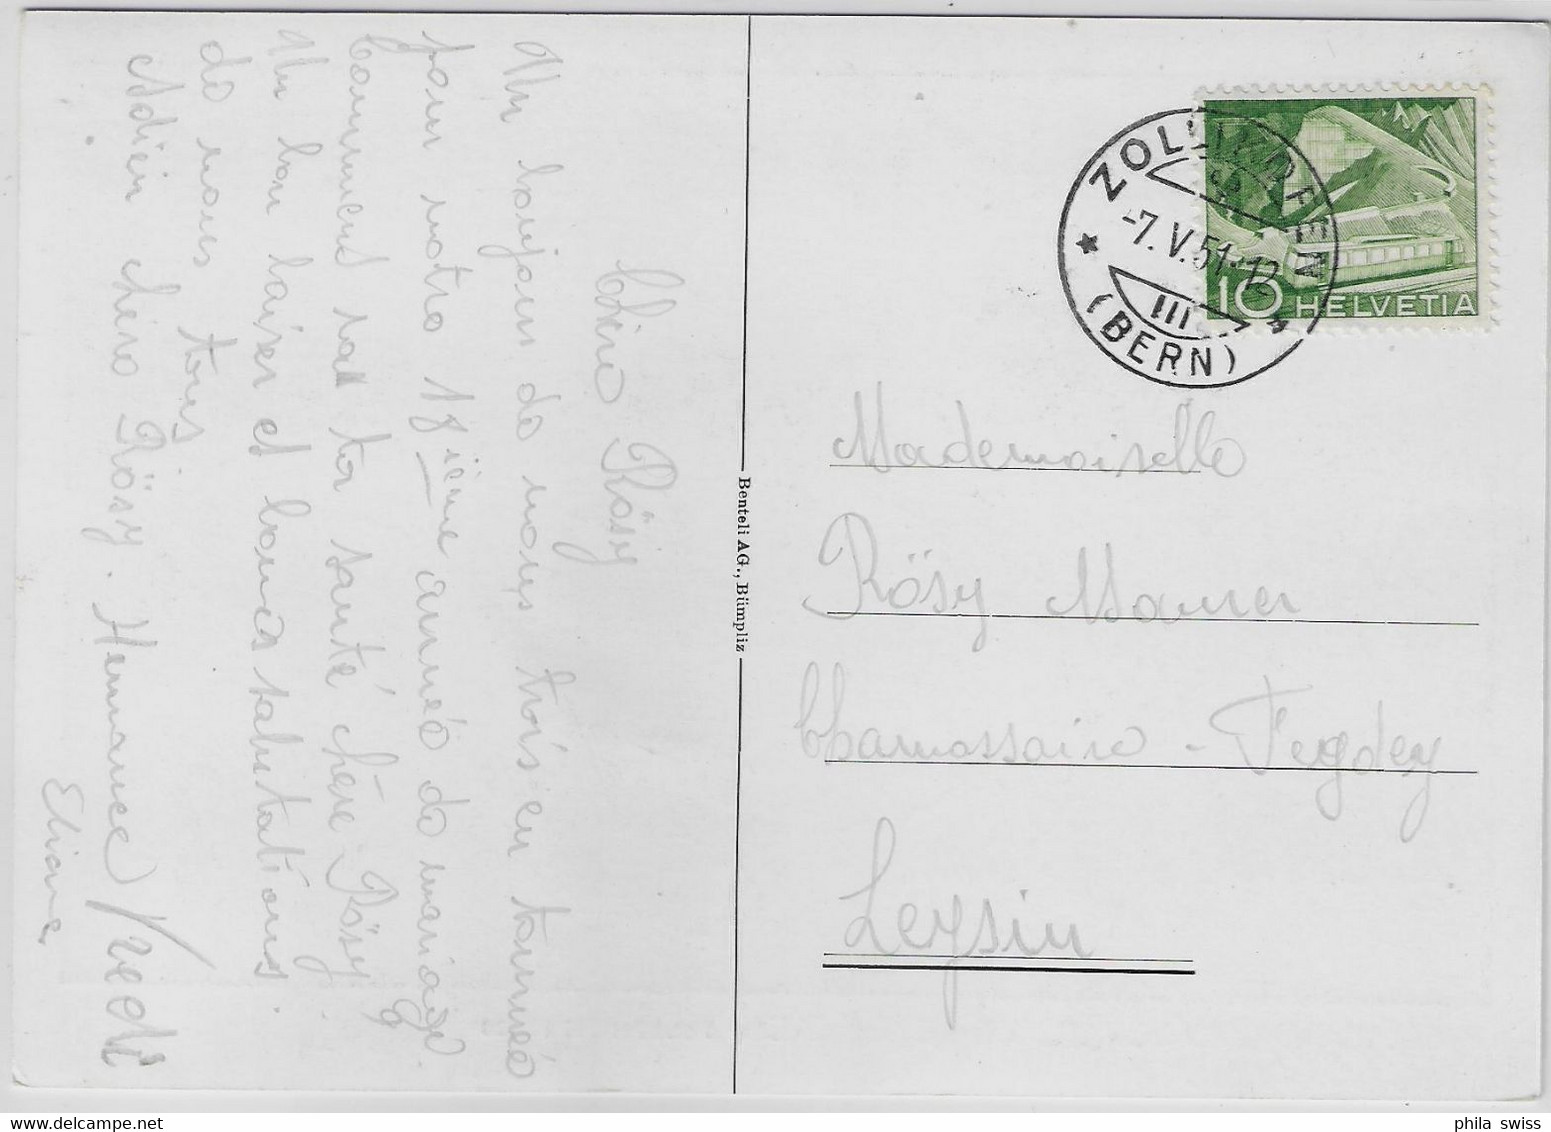 Chère Rösy
Un bonjour de nous trois en tournée
pour notre 18ième année de mariage.
Comment va ta santé chère Rösy.
Un bon baiser et bonnes salutations
de nous tous
Adieu chère Rösy. Hermance / Fredi
Eliane
Benteli AG., Bümpliz
ZOLLIKOFEN
-7.V.51.-12
(BERN)
10 HELVETIA
Mademoiselle
Rösy Maurer
Chamossaire - Feydey
Leysin
phila swiss